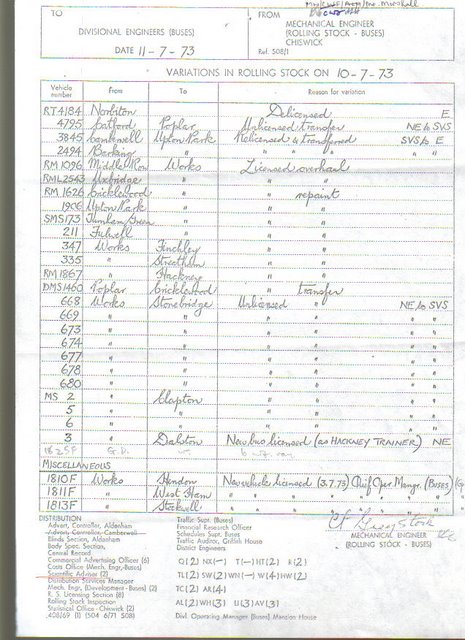 TO
FROM
MECHANICAL ENGINEER
(ROLLING STOCK - BUSES)
CHISWICK
DIVISIONAL ENGINEERS (BUSES)
DATE 11-7-73
Ref. 508/1
VARIATIONS IN ROLLING STOCK ON 10-7-73
Vehicle number From To Reason for variation
RT4184 Norbiton Delicensed E
4795 Catford Poplar Unlicensed transfer NE to SVS
3845 Camberwell Upton Park Relicensed & transferred SVS to E
2494 Barking " " " "
RM 1096 Middle Row Works Licensed overhaul
RML2543 Uxbridge " " "
RM 1626 Cricklewood " " repaint
1906 Upton Park " " "
SMS173 Turnham Green " " "
211 Fulwell " " "
347 Works Finchley " "
335 " Streatham " "
RM1867 " Hackney " "
DMS1460 Poplar Cricklewood " transfer
668 Works Stonebridge Unlicensed " NE to SVS
669 " " " " " "
673 " " " " " "
674 " " " " " "
677 " " " " " "
678 " " " " " "
680 " " " " " "
MS 2 " Clapton " " " "
5 " " " " " "
6 " " " " " "
3 " Dalston New bus licensed (as HACKNEY TRAINER) NE
1625F G.D.
MISCELLANEOUS
1810F Works Hendon New vehicle licensed (3.7.73) Chief Oper. Mangr. (Buses)
1811F " West Ham " " " " " " "
1813F " Stockwell " " " " " " "
DISTRIBUTION
Advert. Controller, Aldenham
Advert. Controller, Camberwell
Blinds Section, Aldenham
Body Spec. Section,
Central Record
Commercial Advertising Officer (6)
Costs Office (Mech. Engr.-Buses)
Scientific Adviser (2)
Distribution Services Manager
Mech. Engr. (Development - Buses) (2)
R. S. Licensing Section (8)
Rolling Stock Inspection
Statistical Office - Chiswick (2)
Traffic Supt. (Buses)
Financial Research Officer
Schedules Supt. Buses
Traffic Auditor, Griffith House
District Engineers
Q(2) NX(-) T(-) HT(2) R(2)
TL(2) SW(2) WN(-) W(4) HW(2)
TC(2) AR(4)
AL(2) WH(3) U(3) AV(3)
Divl. Operating Manager (Buses) Mansion House
MECHANICAL ENGINEER
(ROLLING STOCK - BUSES)